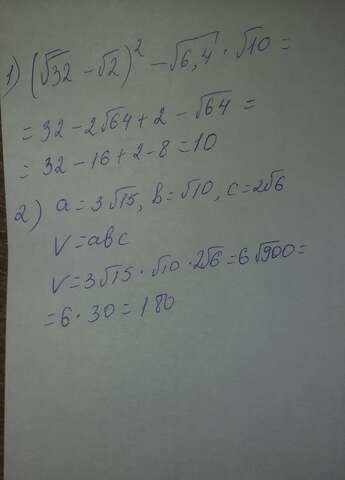 1) (√32 - √2)² - √6,4 · √10 =
= 32 - 2√64 + 2 - √64 =
= 32 - 16 + 2 - 8 = 10
2) a = 3√15, b = √10, c = 2√6
V = abc
V = 3√15 · √10 · 2√6 = 6√900 =
= 6 · 30 = 180